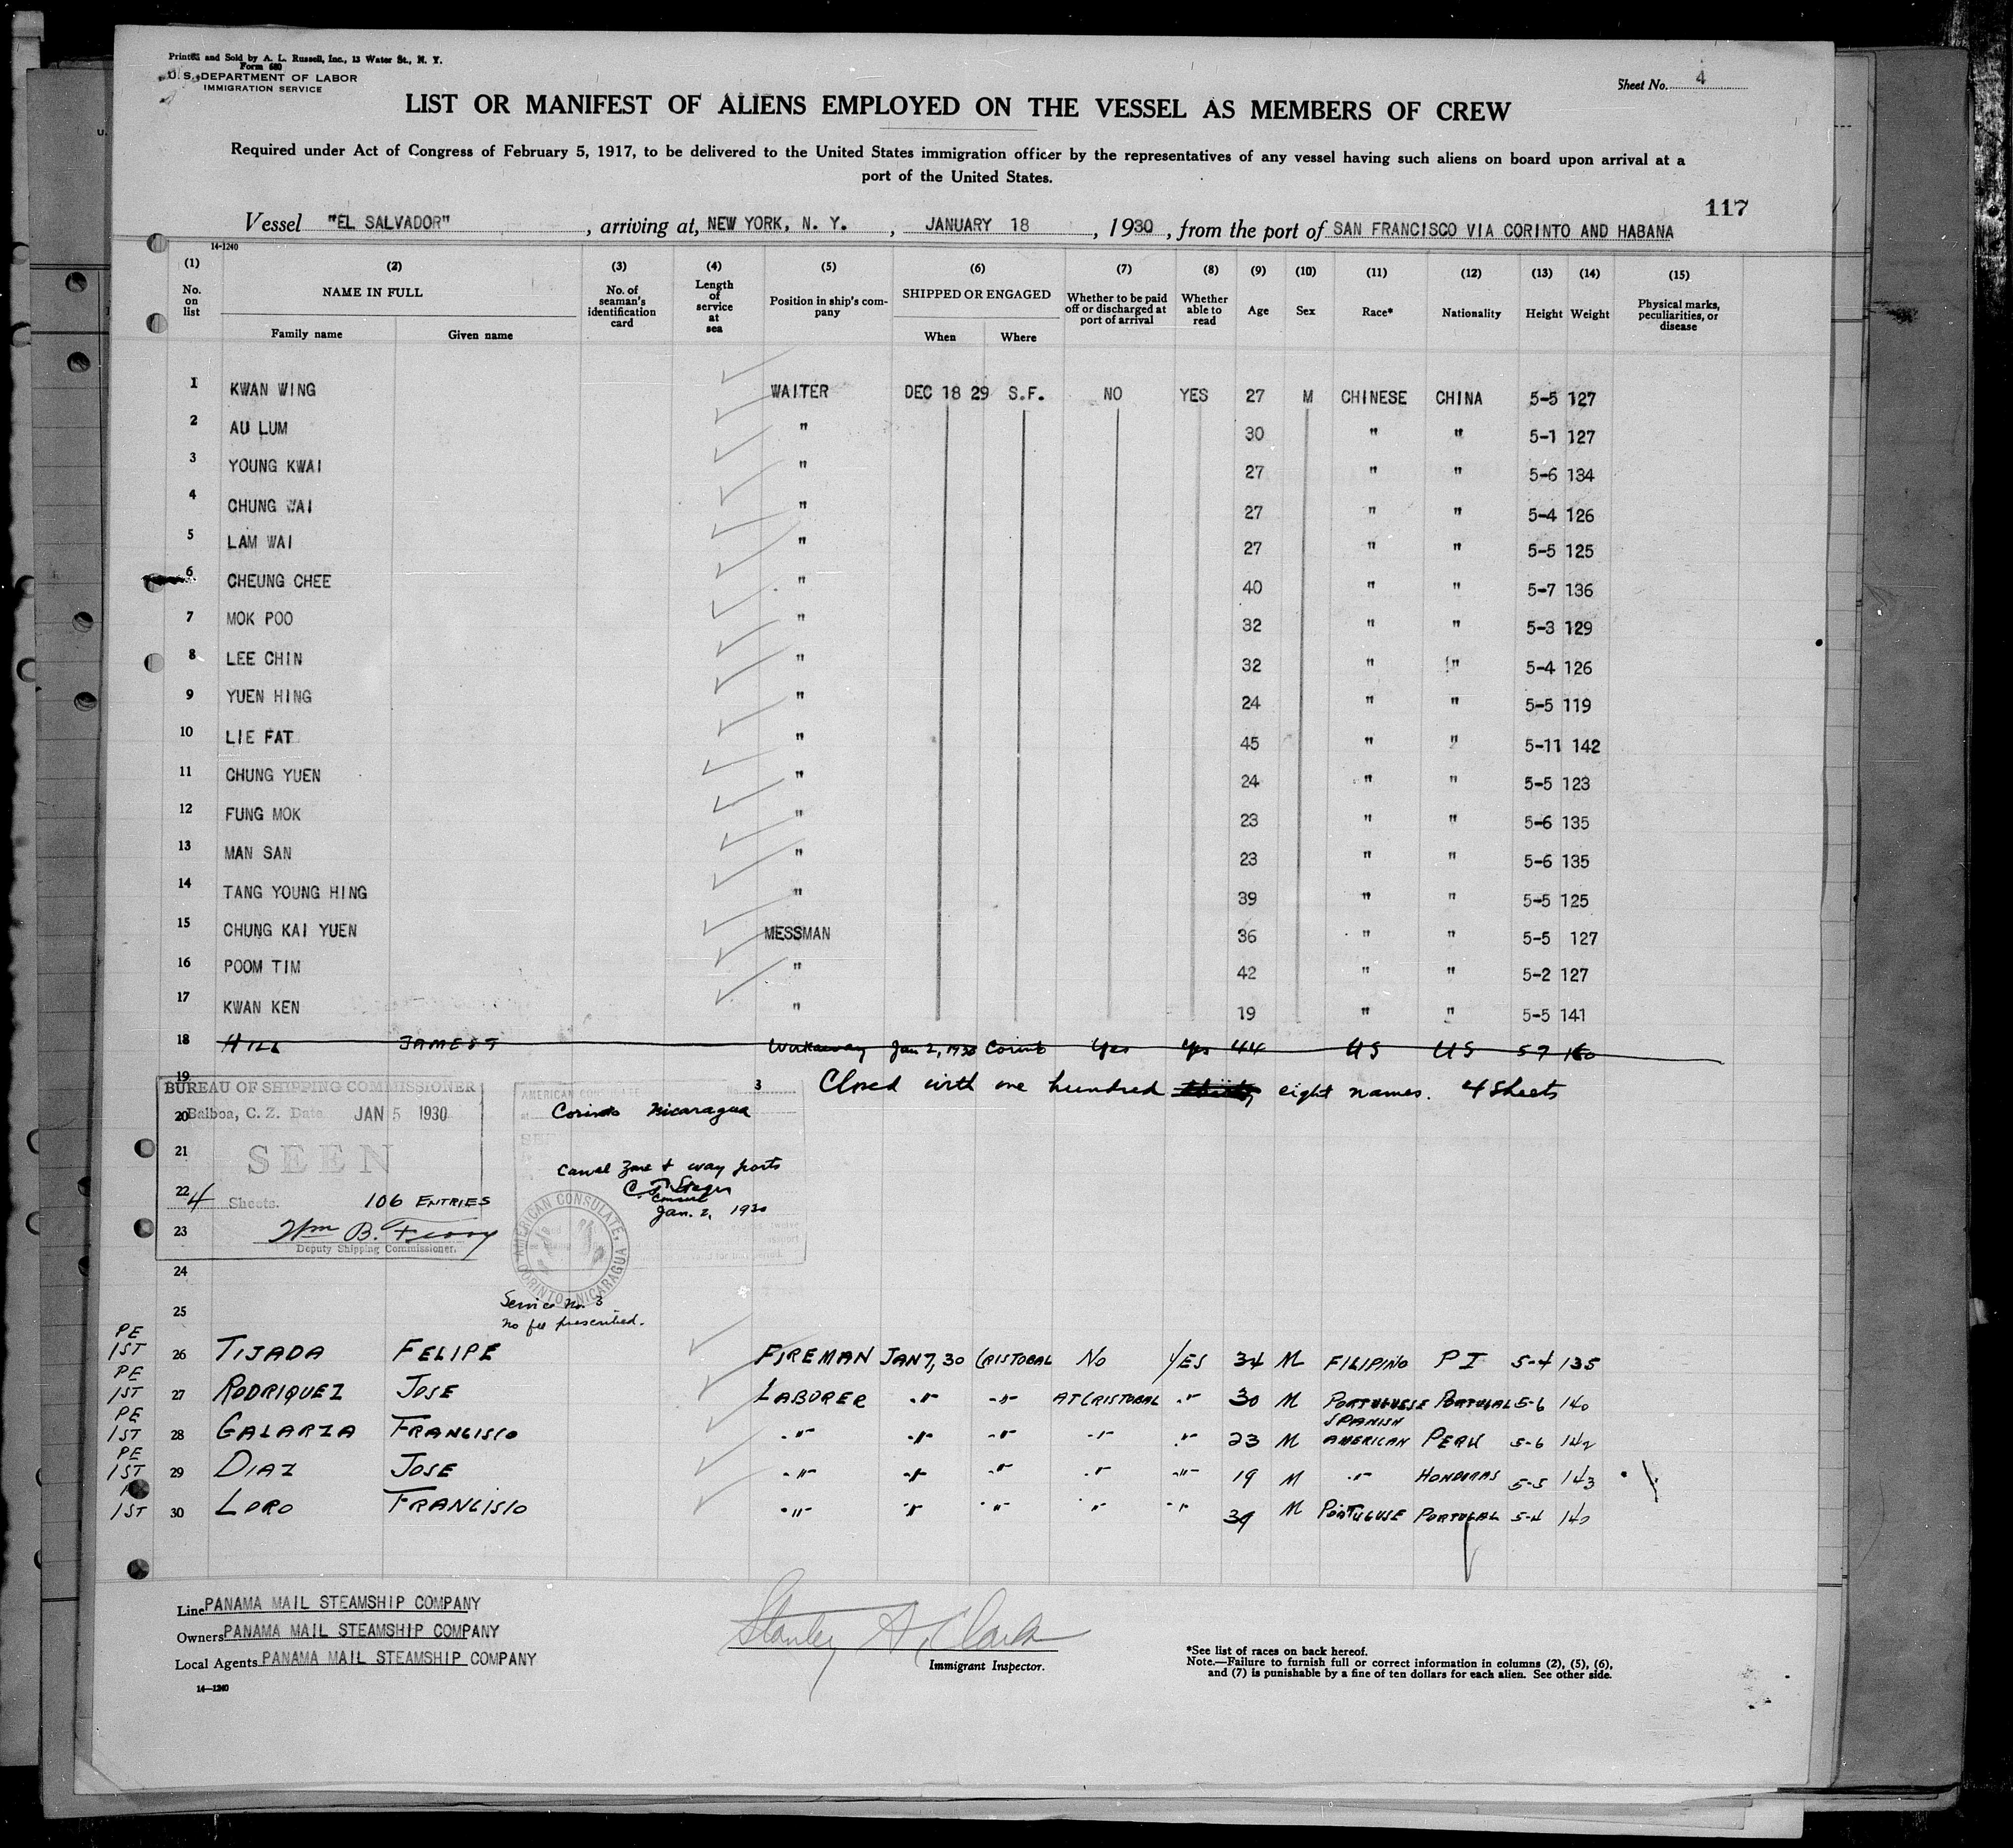 Printed and Sold by A. L. Russell, Inc., 13 Water St., N. Y.
Form 680
U. S. DEPARTMENT OF LABOR
IMMIGRATION SERVICE
Sheet No. 4
LIST OR MANIFEST OF ALIENS EMPLOYED ON THE VESSEL AS MEMBERS OF CREW
Required under Act of Congress of February 5, 1917, to be delivered to the United States immigration officer by the representatives of any vessel having such aliens on board upon arrival at a
port of the United States.
117
Vessel "EL SALVADOR", arriving at, NEW YORK, N. Y., JANUARY 18, 1930, from the port of SAN FRANCISCO VIA CORINTO AND HABANA
14-1240
(1) (2) (3) (4) (5) (6) (7) (8) (9) (10) (11) (12) (13) (14) (15)
No. on list NAME IN FULL Family name Given name No. of seaman's identification card Length of service at sea Position in ship's company SHIPPED OR ENGAGED When Where Whether to be paid off or discharged at port of arrival Whether able to read Age Sex Race* Nationality Height Weight Physical marks, peculiarities, or disease
1 KWAN WING WAITER DEC 18 29 S.F. NO YES 27 M CHINESE CHINA 5-5 127
2 AU LUM " 30 " " 5-1 127
3 YOUNG KWAI " 27 " " 5-6 134
4 CHUNG WAI " 27 " " 5-4 126
5 LAM WAI " 27 " " 5-5 125
6 CHEUNG CHEE " 40 " " 5-7 136
7 MOK POO " 32 " " 5-3 129
8 LEE CHIN " 32 " " 5-4 126
9 YUEN HING " 24 " " 5-5 119
10 LIE FAT " 45 " " 5-11 142
11 CHUNG YUEN " 24 " " 5-5 123
12 FUNG MOK " 23 " " 5-6 135
13 MAN SAN " 23 " " 5-6 135
14 TANG YOUNG HING " 39 " " 5-5 125
15 CHUNG KAI YUEN MESSMAN 36 " " 5-5 127
16 POOM TIM " 42 " " 5-2 127
17 KWAN KEN " 19 " " 5-5 141
18 HILL JAMES T Workaway Jan 2, 1930 Corinto Yes Yes 44 US US 5 7 160
19 Closed with one hundred eight names. 4 Sheets
BUREAU OF SHIPPING COMMISSIONER
20 Balboa, C. Z. Date JAN 5 1930
21 SEEN
22 4 Sheets. 106 ENTRIES
23 Wm B.
Deputy Shipping Commissioner.
AMERICAN CONSULATE No. 3
at Corinto Nicaragua
Canal Zone & way ports
Consul
Jan. 2, 1930
AMERICAN CONSULATE, CORINTO, NICARAGUA
Service No. 3
No fee prescribed.
24
25
PE 1ST 26 TIJADA FELIPE FIREMAN JAN 7, 30 CRISTOBAL NO YES 34 M FILIPINO P I 5-4 135
PE 1ST 27 RODRIQUEZ JOSE LABORER " " AT CRISTOBAL " 30 M PORTUGUESE PORTUGAL 5-6 140
PE 1ST 28 GALARZA FRANCISCO " " " " " 23 M SPANISH AMERICAN PERU 5-6 142
PE 1ST 29 DIAZ JOSE " " " " " 19 M " HONDURAS 5-5 143
1ST 30 LORO FRANCISCO " " " " " 39 M PORTUGUSE PORTUGAL 5-4 140
Line PANAMA MAIL STEAMSHIP COMPANY
Owners PANAMA MAIL STEAMSHIP COMPANY
Local Agents PANAMA MAIL STEAMSHIP COMPANY
14-1240
Stanley A. Clark
Immigrant Inspector.
*See list of races on back hereof.
Note.—Failure to furnish full or correct information in columns (2), (5), (6),
and (7) is punishable by a fine of ten dollars for each alien. See other side.